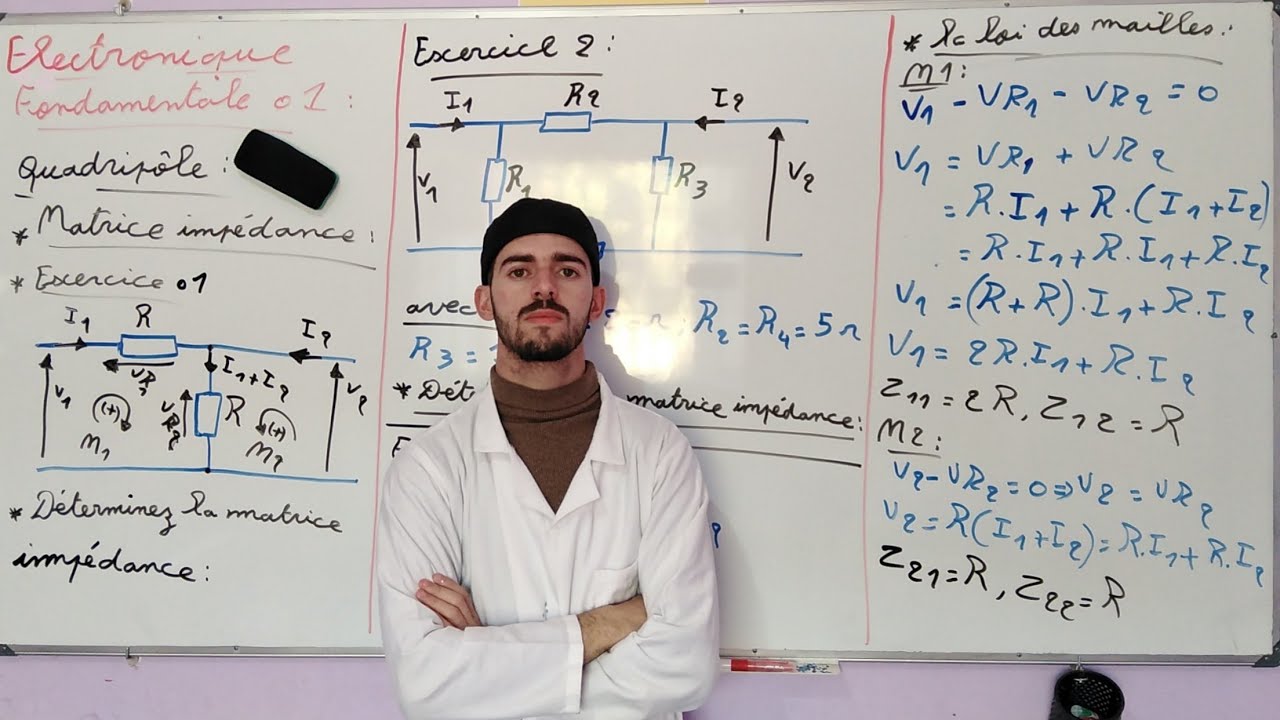 Electronique
Fondamentale 01 :
Quadripôle :
* Matrice impédance :
* Exercice 01
I1 R I2
VR1 I1+I2
V1 (+) VR2 R (+) V2
M1 M2
* Déterminez la matrice
impédance :
Exercice 2 :
I1 R2 I2
V1 R1 R3 V2
avec R2 = R4 = 5Ω
R3 =
* Dét matrice impédance :
* la loi des mailles :
M1 :
V1 - VR1 - VR2 = 0
V1 = VR1 + VR2
= R.I1 + R.(I1+I2)
= R.I1 + R.I1 + R.I2
V1 = (R+R).I1 + R.I2
V1 = 2R.I1 + R.I2
Z11 = 2R, Z12 = R
M2 :
V2 - VR2 = 0 ⇒ V2 = VR2
V2 = R(I1+I2) = R.I1 + R.I2
Z21 = R, Z22 = R